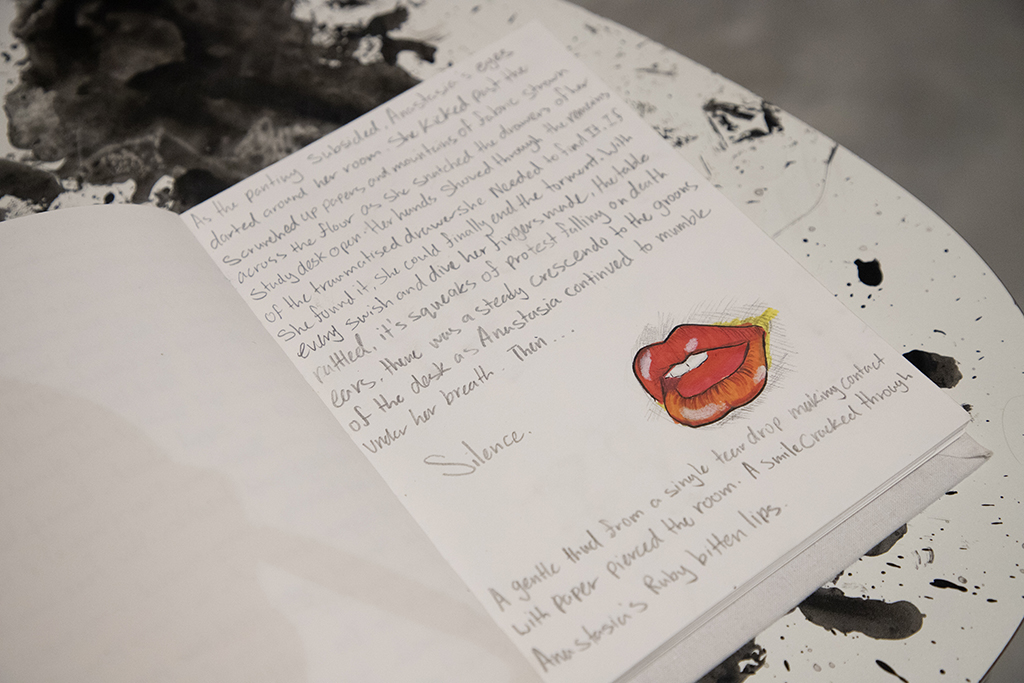 As the panting subsided, Anastasia's eyes
darted around her room. She kicked past the
scrunched up papers, and mountains of fabric strewn
across the flour as she snatched the drawers of her
study desk open. Her hands shoved through the remains
of the traumatised drawer. She needed to find it. If
she found it, she could finally end the torment. With
every swish and dive her fingers made the table
rattled, it's squeaks of protest falling on death
ears. there was a steady crescendo to the groans
of the desk as Anastasia continued to mumble
under her breath. Then...
Silence.
A gentle thud from a single tear drop making contact
with paper pierced the room. A smile cracked through
Anastasia's Ruby bitten lips.